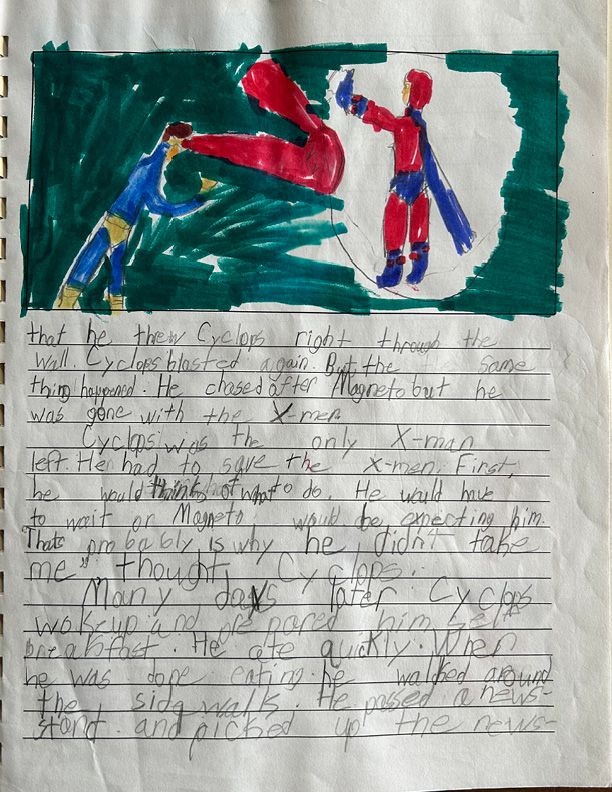 that he threw Cyclops right through the
wall. Cyclops blasted again. But the same
thing happened. He chased after Magneto but he
was gone with the X-men
Cyclops was the only X-man
left. He had to save the X-men. First,
he would think of what to do. He would have
to wait or Magneto would be expecting him.
Thats probably is why he didn't take
me" thought Cyclops.
Many days later Cyclops
wok up and prepared himself
breakfast. He ate quickly. When
he was done eating he walked around
the sidewalks. He passed a news-
stand and picked up the news-